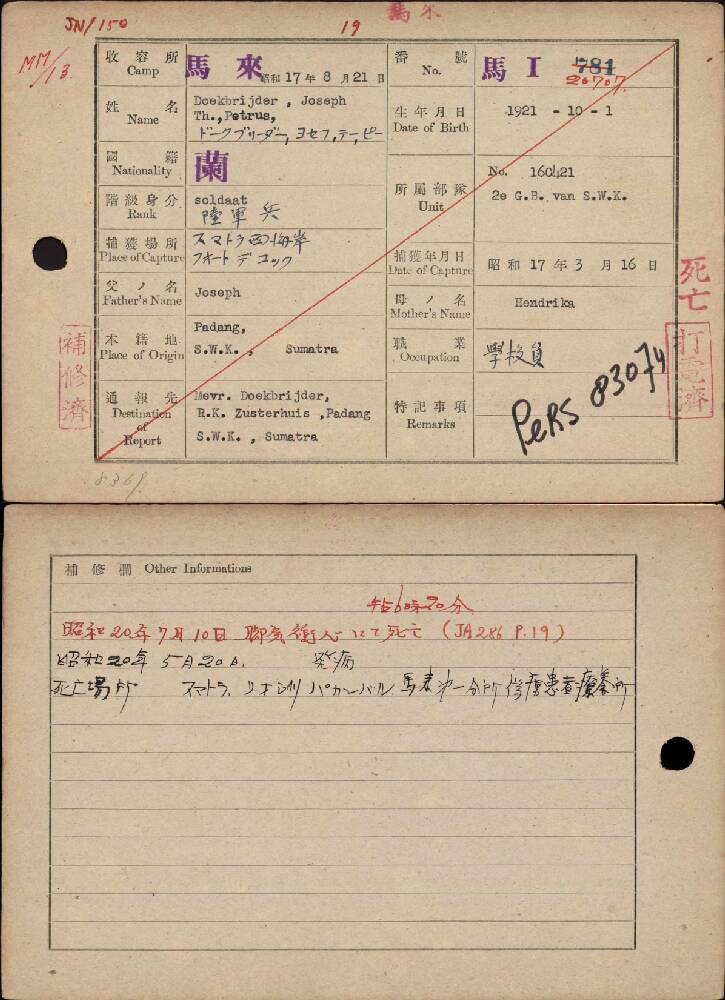 JN/150
19
馬来
MM/13
收容所 Camp
馬來
昭和 17 年 8 月 21 日
番號 No.
馬 I 781
20707
姓名 Name
Doekbrijder , Joseph
Th.,Petrus,
ドークブリーダー, ヨセフ, テー, ピー
生年月日 Date of Birth
1921 - 10 - 1
國籍 Nationality
蘭
階級身分 Rank
soldaat
陸軍兵
所屬部隊 Unit
No. 160421
2e G.B. van S.W.K.
捕獲場所 Place of Capture
スマトラ西海岸
フオートデコック
捕獲年月日 Date of Capture
昭和 17 年 3 月 16 日
父ノ名 Father's Name
Joseph
母ノ名 Mother's Name
Hendrika
本籍地 Place of Origin
Padang,
S.W.K. , Sumatra
職業 Occupation
學校員
通報先 Destination of Report
Mevr. Doekbrijder,
R.K. Zusterhuis ,Padang
S.W.K. , Sumatra
特記事項 Remarks
PeRS 83074
補修濟
死亡
打電濟
8369
補修欄 Other Informations
6時20分
昭和20年7月10日 脚気衝心ニテ死亡 (JA286 P.19)
昭和20年5月20日 発病
死亡場所 スマトラ リオ州 パカンバル 馬来第一分所 患者療養所